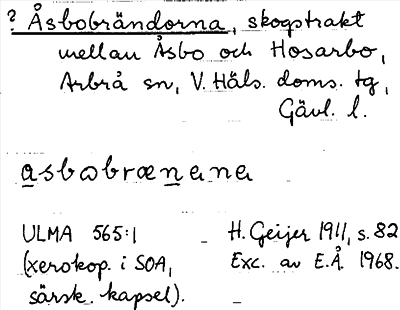 ? Åsbobrändorna, skogstrakt
mellan Åsbo och Hosarbo,
Arbrå sn, V. Häls. doms. tg,
Gävl. l.
asbωbrænana
ULMA 565:1 – H. Geijer 1911, s. 82
(xerokop. i SOA, Exc. av E.Å. 1968.
särsk. kapsel). –